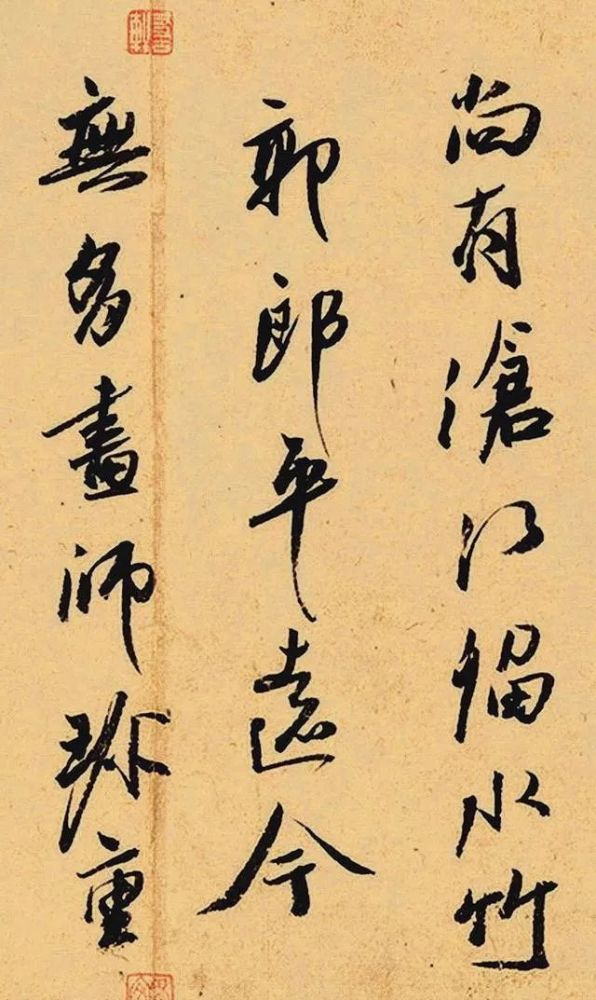 尚有滄江水竹
郭郎平遠今
無多畫師珎重